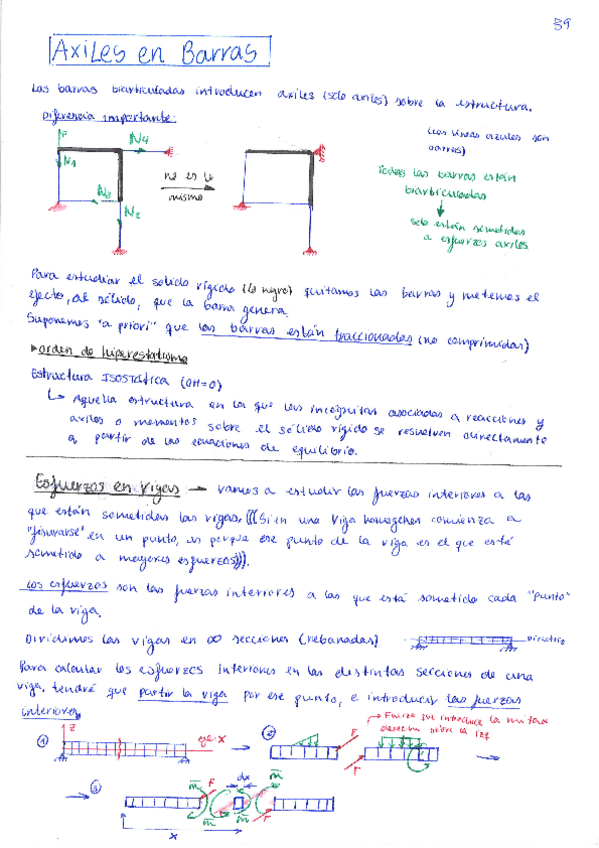 39
Axiles en Barras
Las barras biarticuladas introducen axiles (solo axiles) sobre la estructura.
Diferencia importante:
F
N4
N1
N3
N2
no es lo
mismo
(Las líneas azules son
barras)
Todas las barras están
biarticuladas
solo están sometidas
a esfuerzos axiles
Para estudiar el sólido rígido (lo negro) quitamos las barras y metemos el
efecto, al sólido, que la barra genera.
Suponemos "a priori" que las barras están traccionadas (no comprimidas)
orden de hiperestatismo
Estructura ISOSTática (OH=0)
Aquella estructura en la que las incógnitas asociadas a reacciones y
axiles o momentos sobre el sólido rígido se resuelven directamente
a partir de las ecuaciones de equilibrio.
Esfuerzos en vigas → vamos a estudiar las fuerzas interiores a las
que están sometidas las vigas. (((Si en una viga homogenea comienza a
"fisurarse" en un punto, es porque ese punto de la viga es el que esté
sometido a mayores esfuerzos))).
Los esfuerzos son las fuerzas interiores a las que está sometido cada "punto"
de la viga.
Dividimos las vigas en ∞ secciones (rebanadas)
Directriz
Para calcular los esfuerzos interiores en las distintas secciones de una
viga, tendré que partir la viga por ese punto, e introducir las fuerzas
interiores.
Fuerza que introduce la mitad
derecha sobre la izq
1
z
eje x
2
F
F
m
3
m
F
dx
m
m
F
m
x